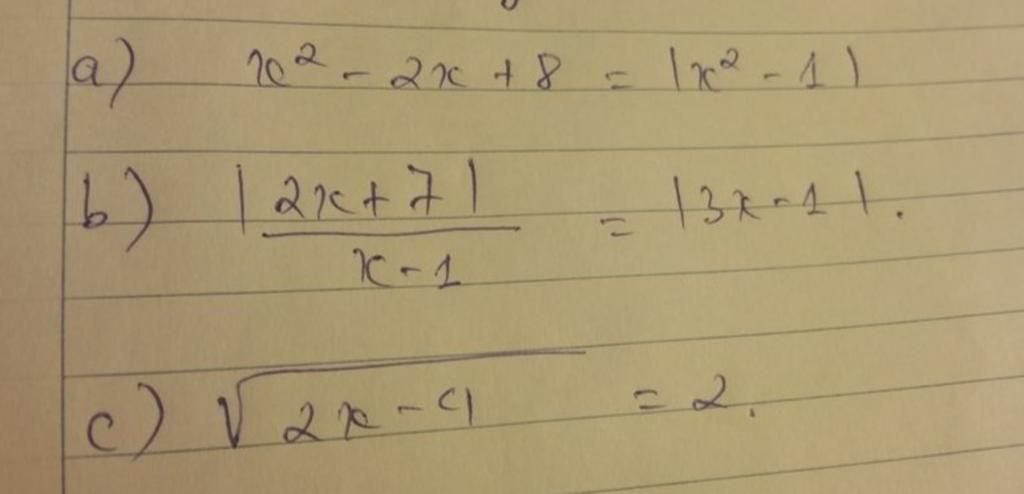 a) x² - 2x + 8 = |x² - 1|
b) |2x + 7| / x - 1 = |3x - 1|.
c) √2x - 4 = 2.